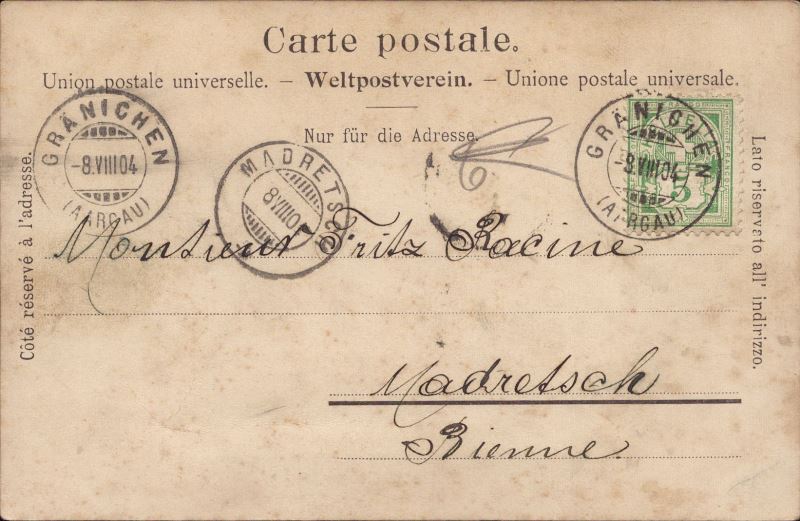 Carte postale.
Union postale universelle. – Weltpostverein. – Unione postale universale.
Nur für die Adresse.
GRÄNICHEN
-8.VIII.04
(AARGAU)
MADRETSCH
8VIII04
6
GRÄNICHEN
-8.VIII.04
(AARGAU)
5
Côté réservé à l'adresse.
Lato riservato all' indirizzo.
Monsieur Fritz Racine
Madretsch
Bienne.